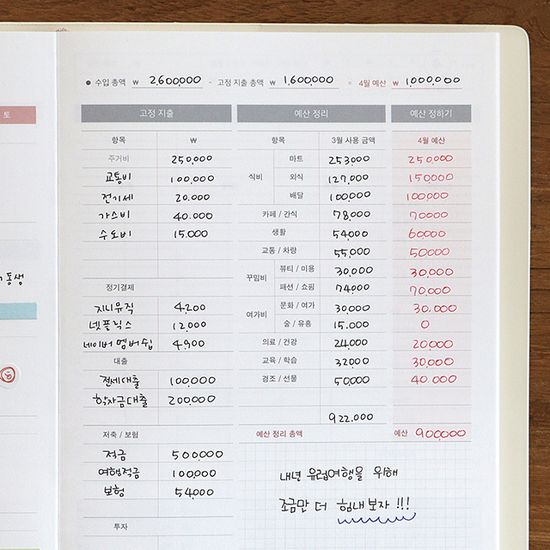 토
동생
● 수입 총액 ₩ 2,600,000 - 고정 지출 총액 ₩ 1,600,000 = 4월 예산 ₩ 1,000,000
고정 지출
항목 ₩
주거비 250,000
교통비 100,000
전기세 20,000
가스비 40,000
수도비 15,000
정기결제
지니뮤직 4,200
넷플릭스 12,000
네이버 멤버십 4,900
대출
전세대출 100,000
학자금대출 200,000
저축 / 보험
적금 500000
여행적금 100,000
보험 54,000
투자
예산 정리 예산 정하기
항목 3월 사용 금액 4월 예산
식비 마트 253,000 250,000
외식 127,000 150,000
배달 100,000 100,000
카페 / 간식 78,000 70000
생활 54,000 60000
교통 / 차량 55,000 50000
꾸밈비 뷰티 / 미용 30,000 30,000
패션 / 쇼핑 74,000 70,000
여가비 문화 / 여가 30,000 30,000
술 / 유흥 15,000 0
의료 / 건강 24,000 20000
교육 / 학습 32000 30,000
경조 / 선물 50,000 40,000
922,000
예산 정리 총액 예산 900,000
내년 유럽여행을 위해
조금만 더 힘내보자!!!